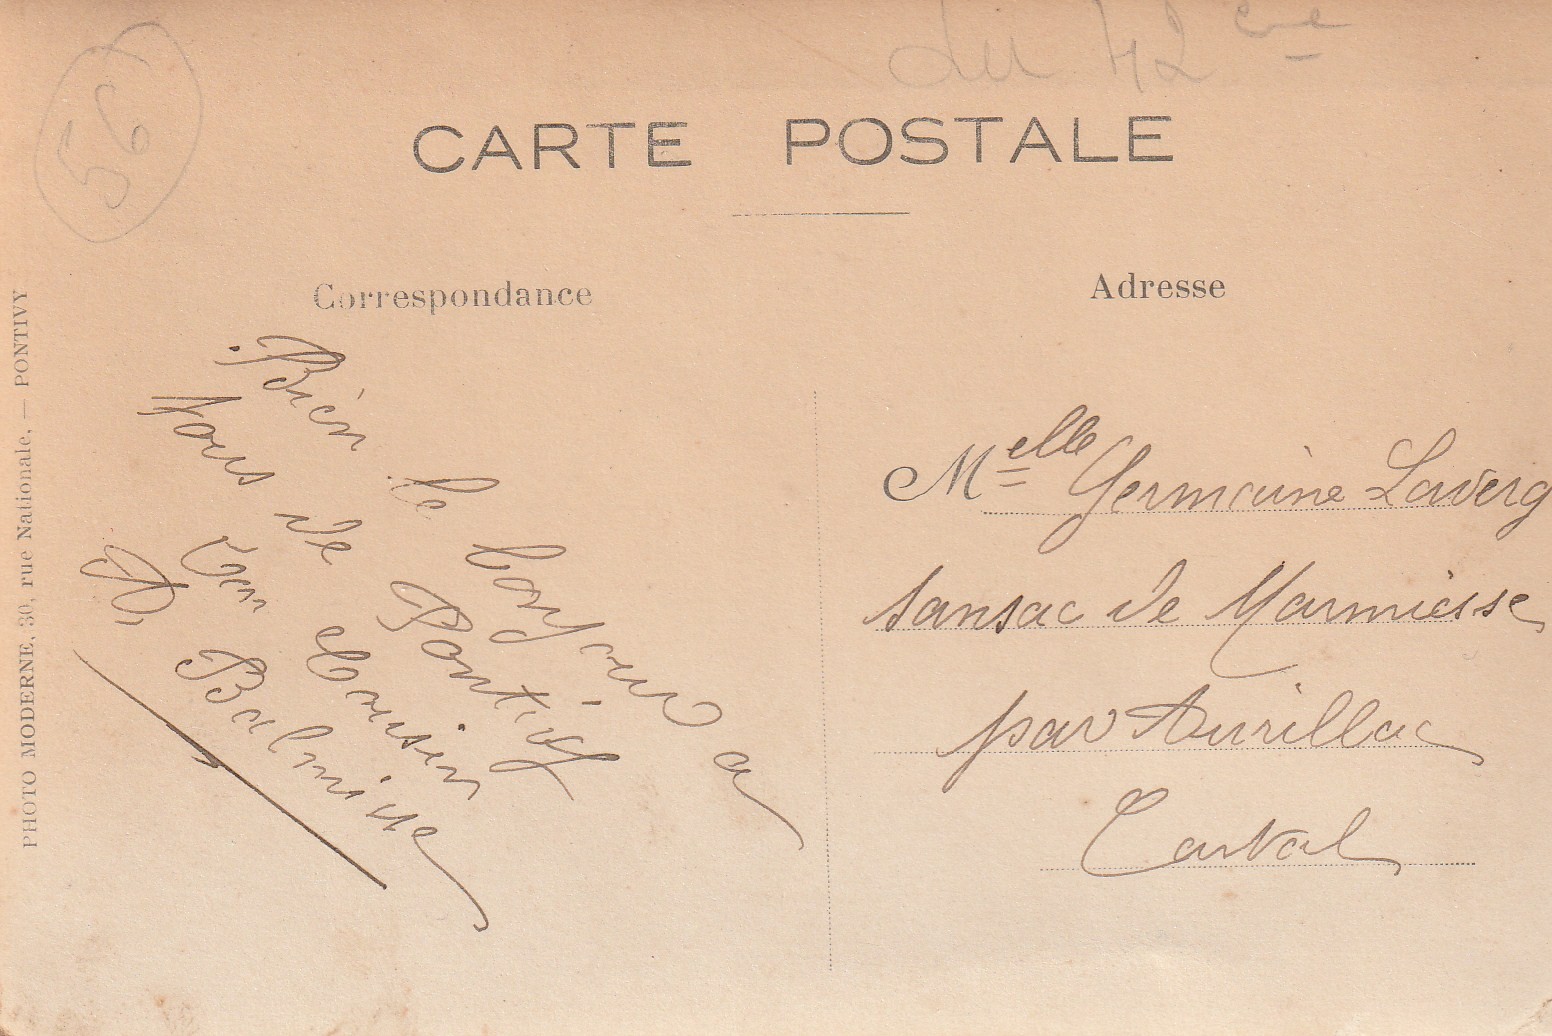 du 42 eme
56
CARTE POSTALE
Correspondance
Bien le bonjour a
tous de Pontivy
Ton Cousin
Balmisse
Adresse
Melle Germaine Laverg
Sansac de Marmiesse
par Aurillac
Cantal
PHOTO MODERNE, 30, rue Nationale. — PONTIVY